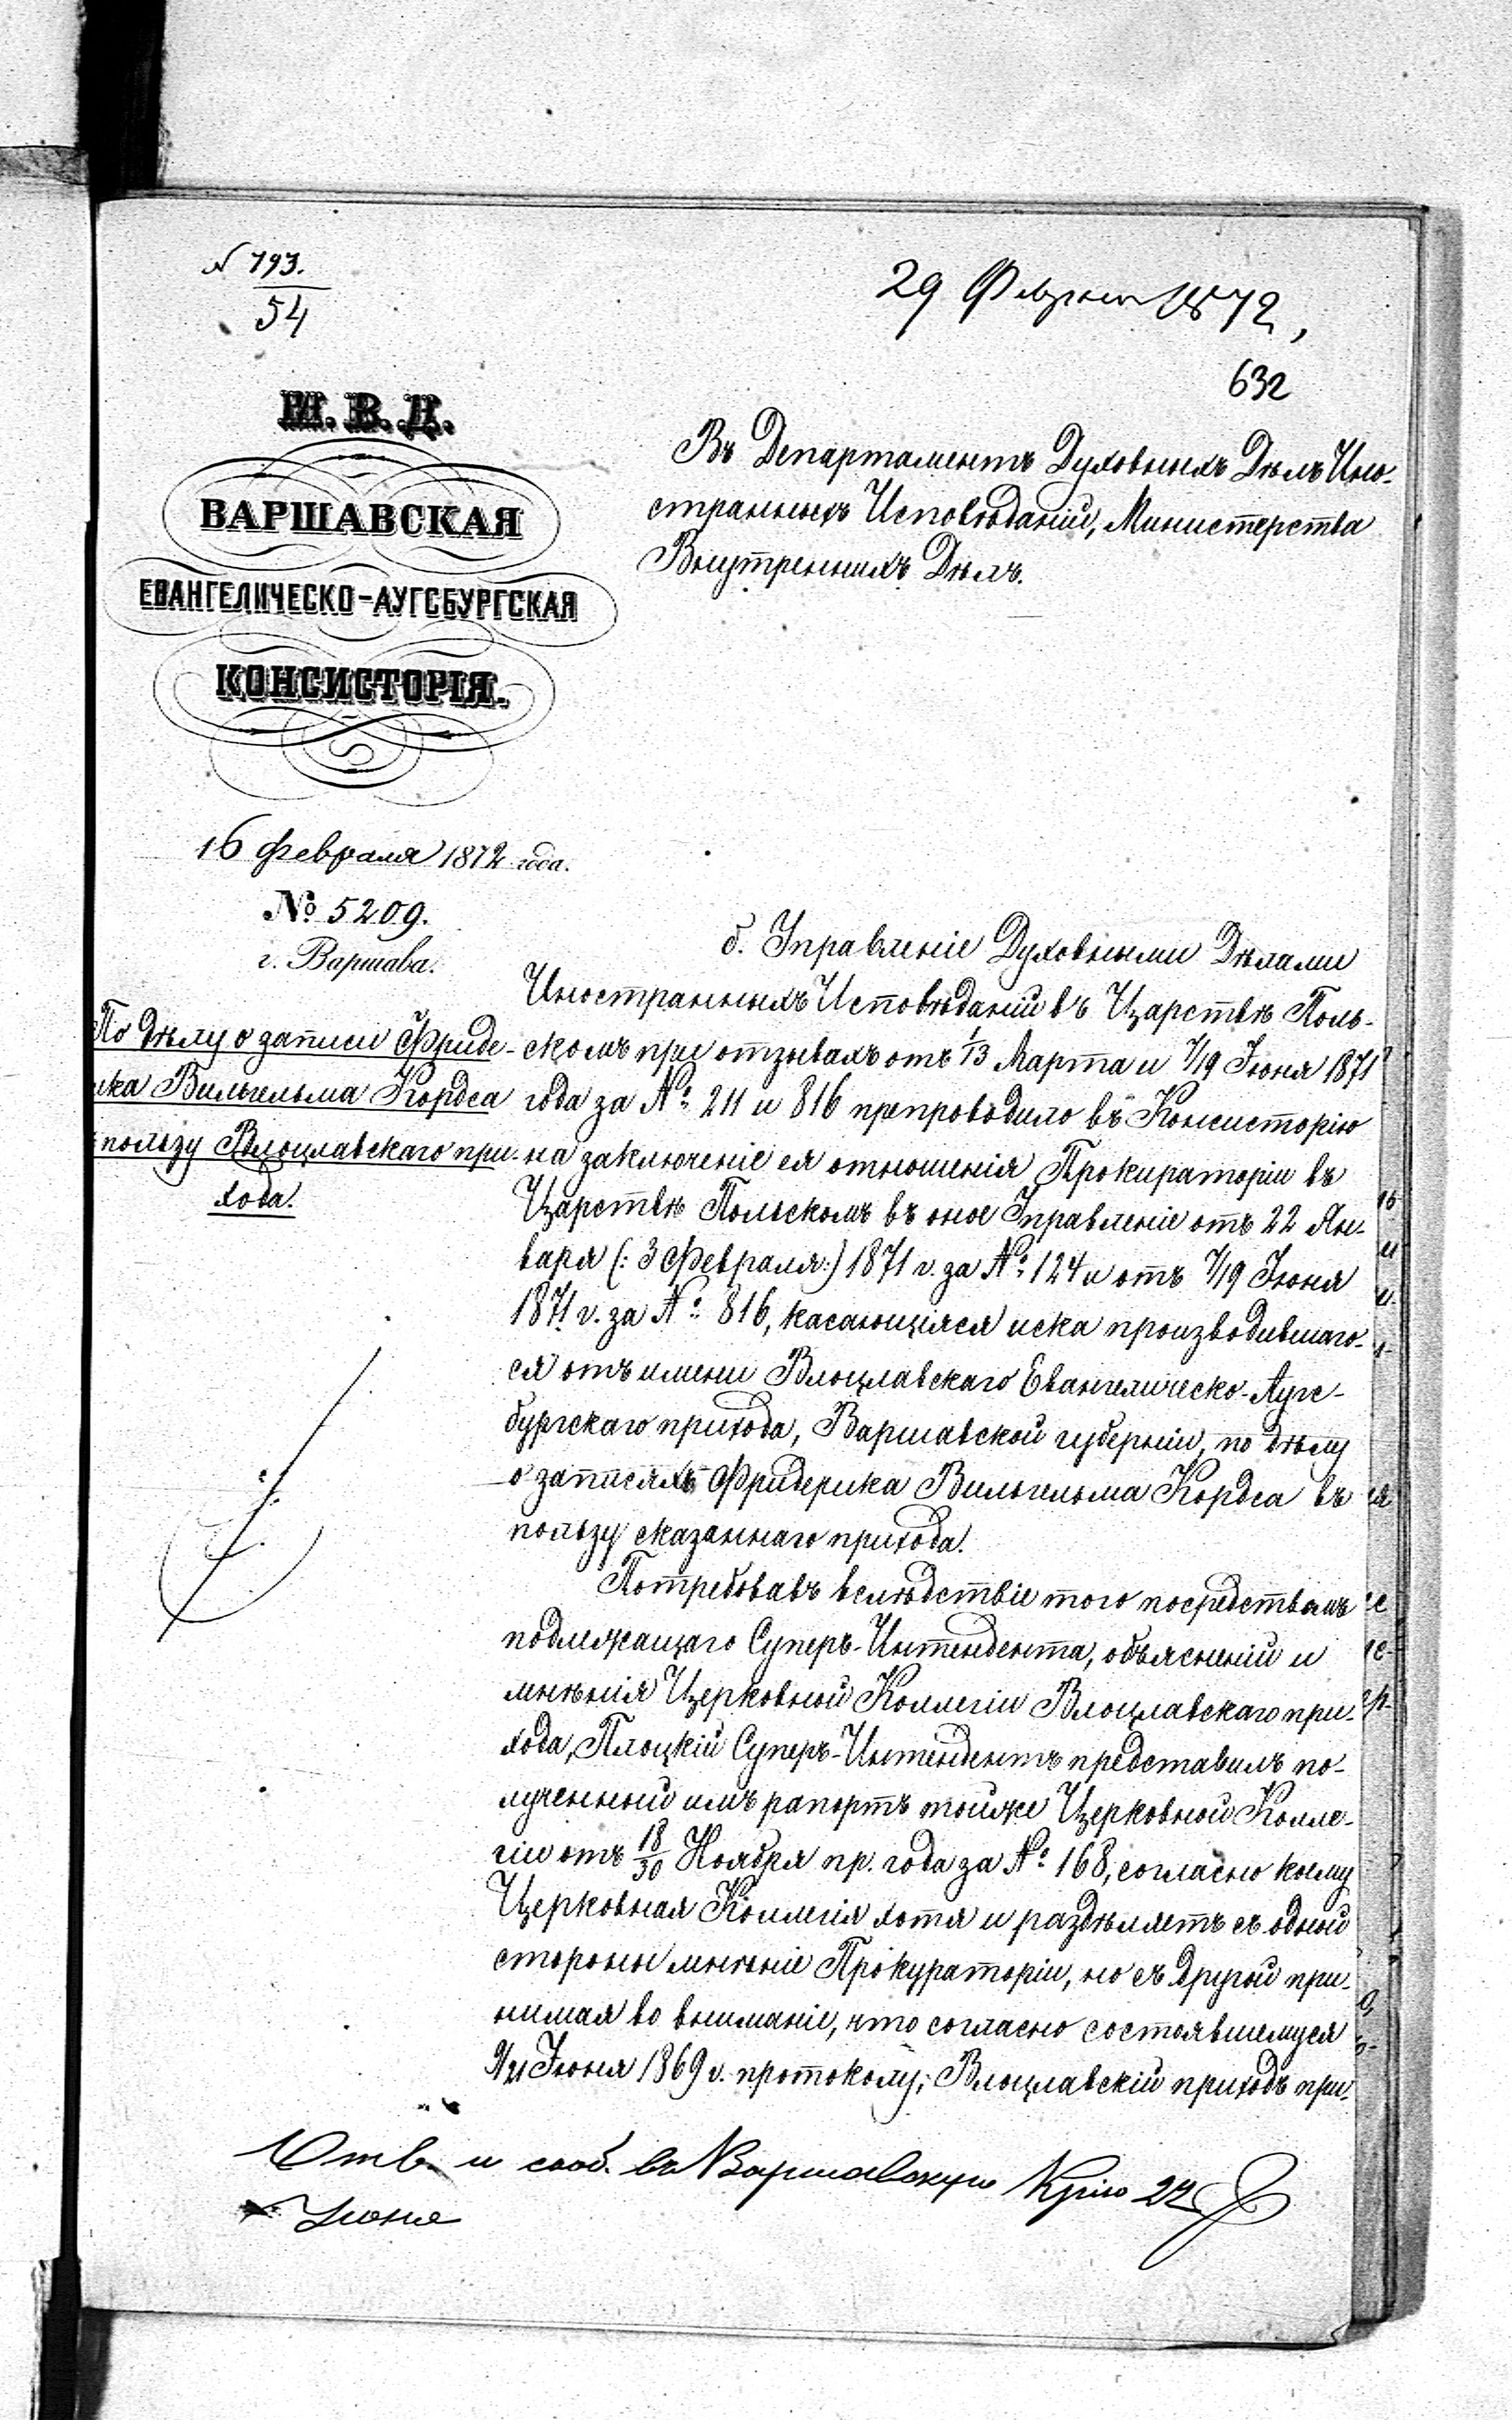 N 793.
54
29 Февраля 1872,
632
М. В. Д.
ВАРШАВСКАЯ
ЕВАНГЕЛИЧЕСКО-АУГСБУРГСКАЯ
КОНСИСТОРІЯ.
16 Февраля 1872 года.
№ 5209.
г. Варшава.
По дѣлу о записи Фриде-
рика Вильгельма Кордса
въ пользу Влоцлавскаго при-
хода.
Въ Департаментъ Духовныхъ Дѣлъ Ино-
странныхъ Исповѣданій, Министерства
Внутреннихъ Дѣлъ.
б. Управленіе Духовными Дѣлами
Иностранныхъ Исповѣданій въ Царствѣ Поль-
скомъ при отзывахъ отъ 1/13 Марта и 7/19 Іюня 1871
года за № 211 и 816 препроводило въ Консисторію
на заключеніе ея отношенія Прокураторіи въ
Царствѣ Польскомъ въ оное Управленіе отъ 22 Ян-
варя (: 3 Февраля :) 1871 г. за № 124 и отъ 7/19 Іюня
1871 г. за № 816, касающіяся иска производившаго-
ся отъ имени Влоцлавскаго Евангелическо-Аугс-
бургскаго прихода, Варшавской губерніи, по дѣлу
о записяхъ Фридерика Вильгельма Кордса въ
пользу сказаннаго прихода.
Потребовавъ вслѣдствіе того посредствомъ
подлежащаго Суперъ-Интендента, объясненій и
мнѣнія Церковной Коллегіи Влоцлавскаго при-
хода, Плоцкій Суперъ-Интендентъ представилъ по-
лученный имъ рапортъ тойже Церковной Колле-
гіи отъ 18/30 Ноября пр. года за № 168, согласно коему
Церковная Коллегія хотя и раздѣляетъ съ одной
стороны мнѣніе Прокураторіи, но съ другой при-
нимая во вниманіе, что согласно состоявшемуся
9/21 Іюня 1869 г. протоколу, Влоцлавскій приходъ при-
Отв. и сооб. въ Варшавскую Крію 22
Іюня